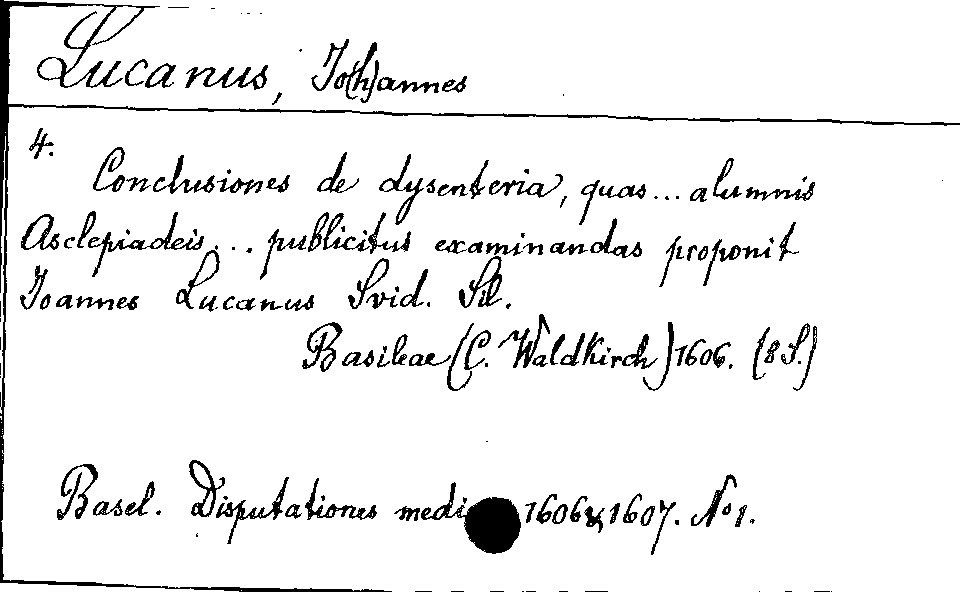 Lucanus, Jo(h)annes
4.
Conclusiones de dysenteria, quas ... alumnis
Asclepiadeis ... publicitus examinandas proponit
Joannes Lucanus Svid. Sil.
Basileae (C. Waldkirch) 1606. (8 S.)
Basel. Disputationes medi 1606 & 1607. No 1.